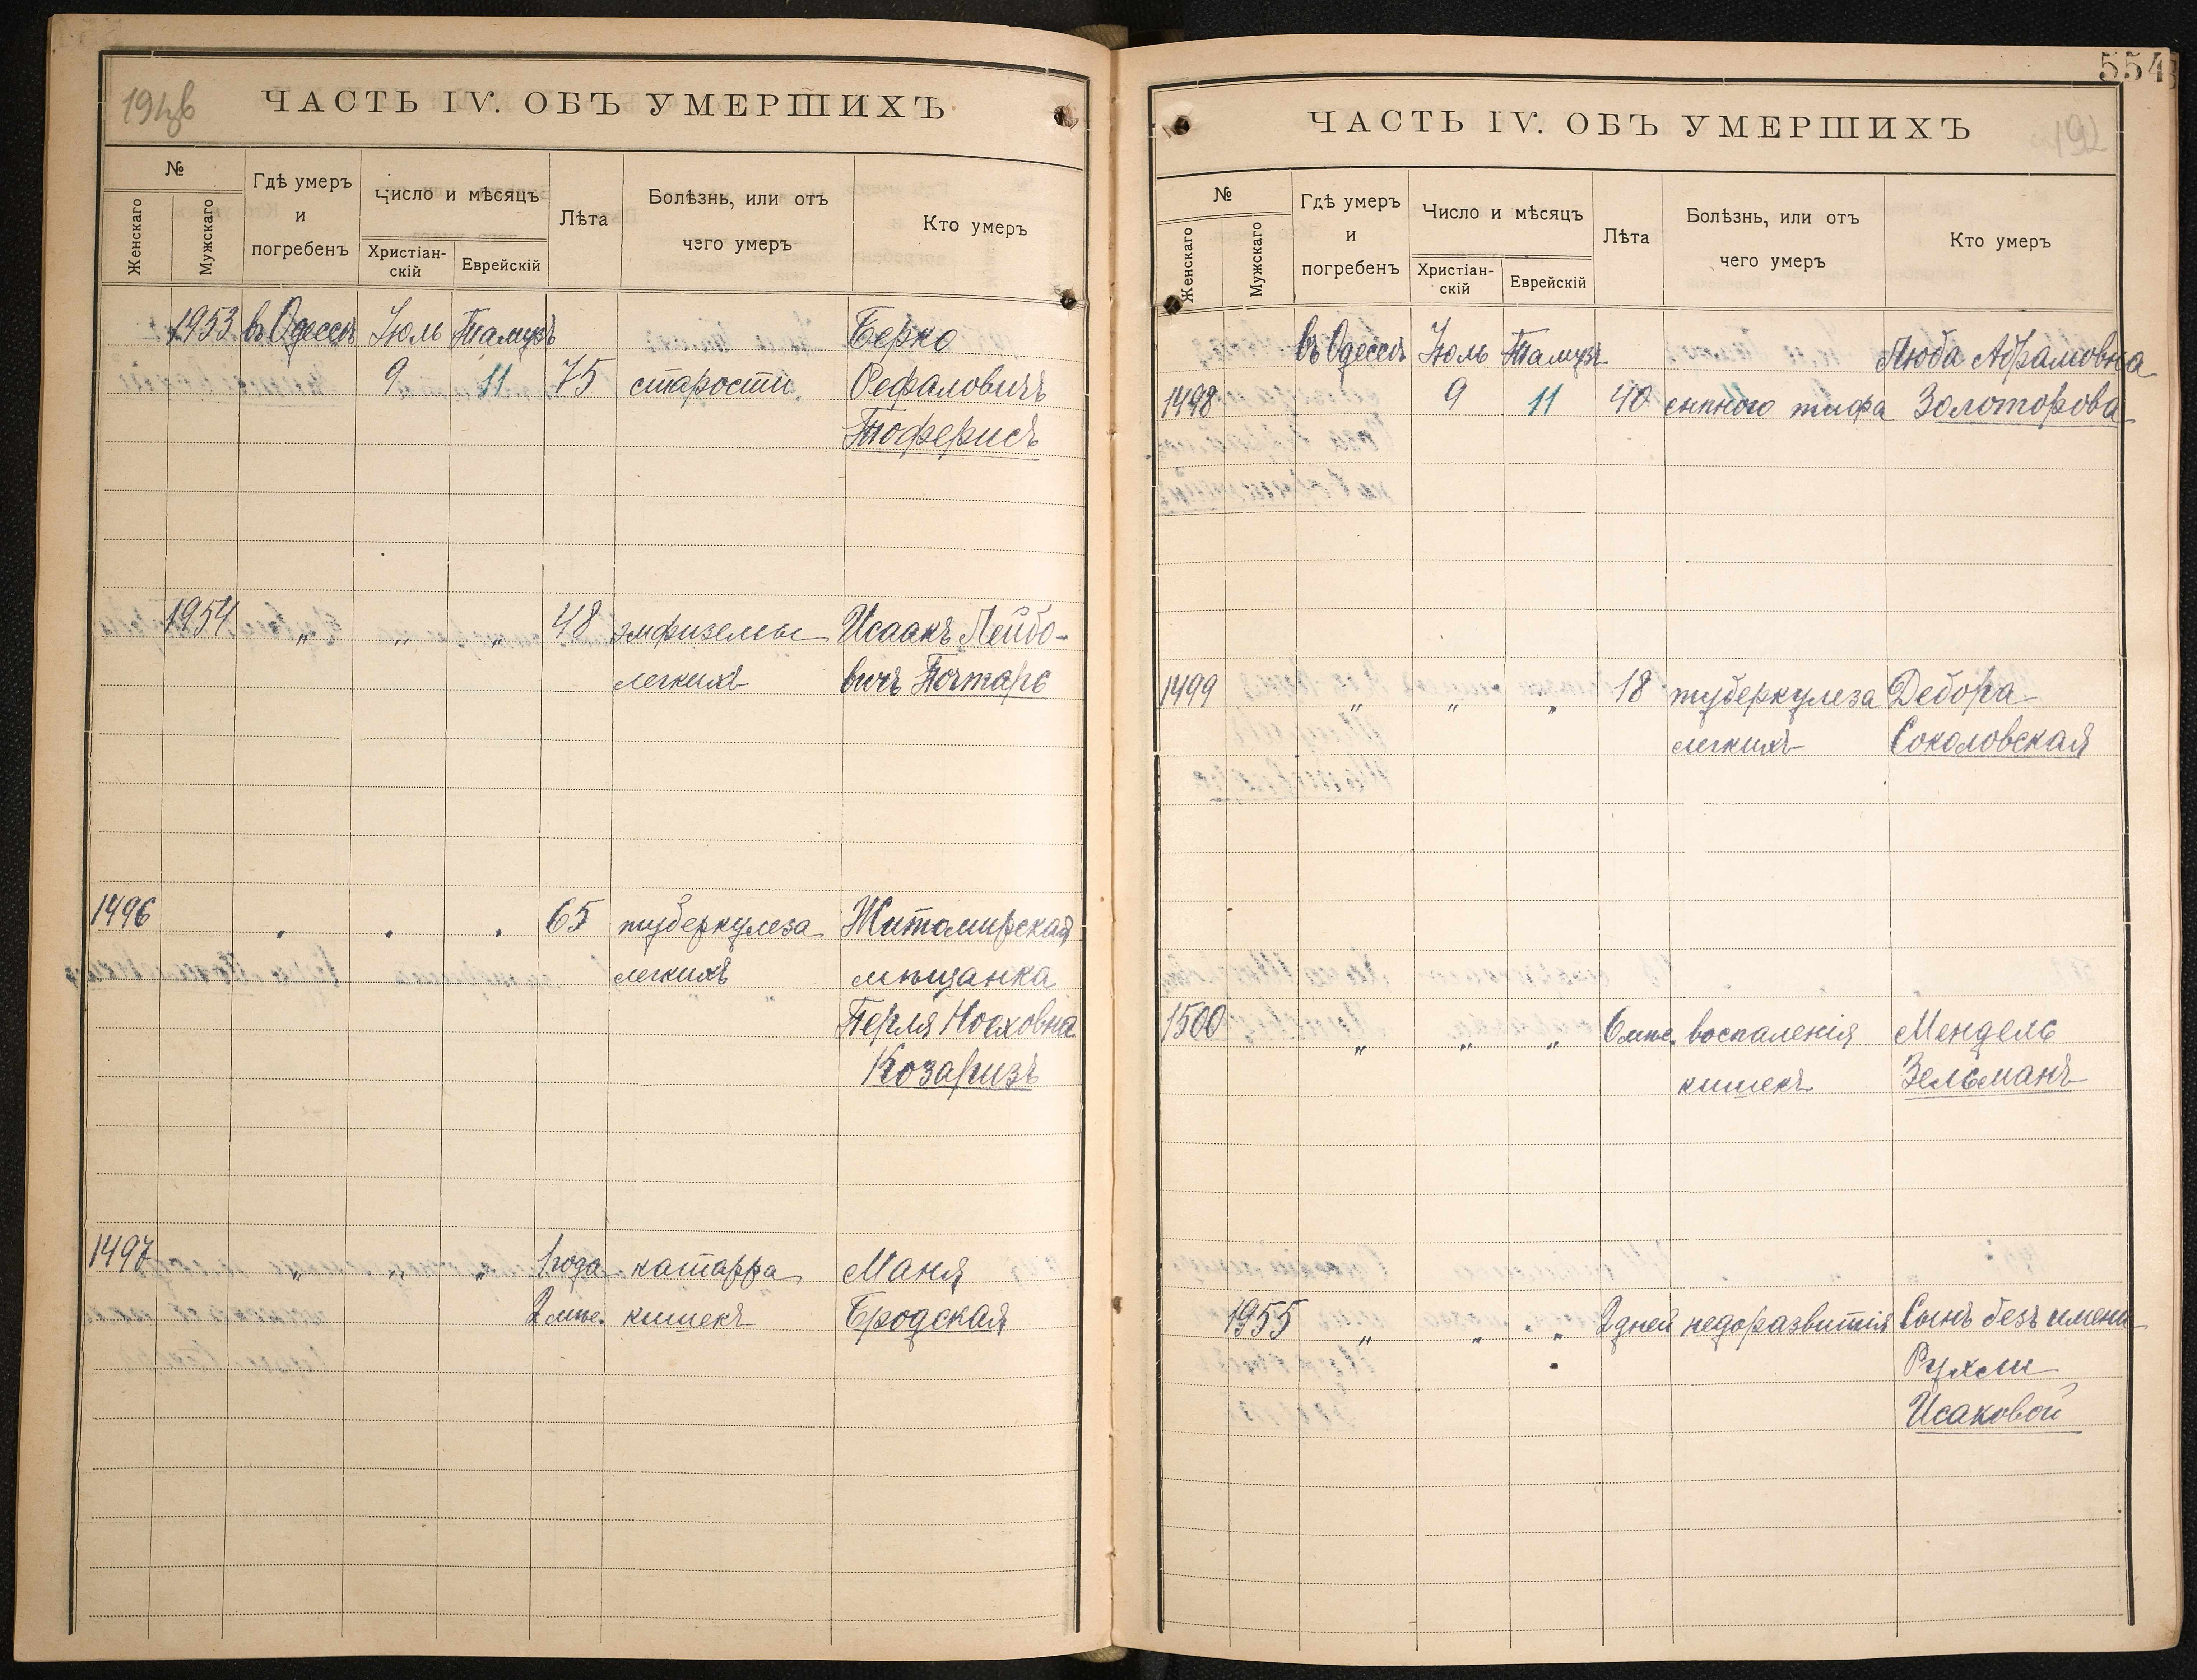 ЧАСТЬ IV. ОБЪ УМЕРШИХЪ
№
Женскаго
Мужскаго
Гдѣ умеръ
и
погребенъ
Число и мѣсяцъ
Христіан-
скій
Еврейскій
Лѣта
Болѣзнь, или отъ
чего умеръ
Кто умеръ
1953 въ Одессѣ Іюль Тамузъ Берко
9 11 75 старости Рефаловичъ
Тоферисъ
1954 „ „ „ 48 эмфиземы Исаакъ Лейбо-
легкихъ вичъ Почтарь
1496 65 туберкулеза Житомирская
легкихъ мѣщанка
Перля Ноеховна
Козаризъ
1497 „ „ „ 1 года катарра Маня
2 мѣс. кишекъ Бродская
554
ЧАСТЬ IV. ОБЪ УМЕРШИХЪ
192
№
Женскаго
Мужскаго
Гдѣ умеръ
и
погребенъ
Число и мѣсяцъ
Христіан-
скій
Еврейскій
Лѣта
Болѣзнь, или отъ
чего умеръ
Кто умеръ
въ Одессѣ Іюль Тамузъ Люба Абрамовна
1498 9 11 40 сыпного тифа Золоторова
1499 „ „ „ 18 туберкулеза Дебора
легкихъ Соколовская
1500 „ „ „ 6 мѣс. воспаленія Мендель
кишекъ Зельманъ
1955 „ „ „ 2 дней недоразвитія Сынъ безъ имени
Рухли
Исаковой